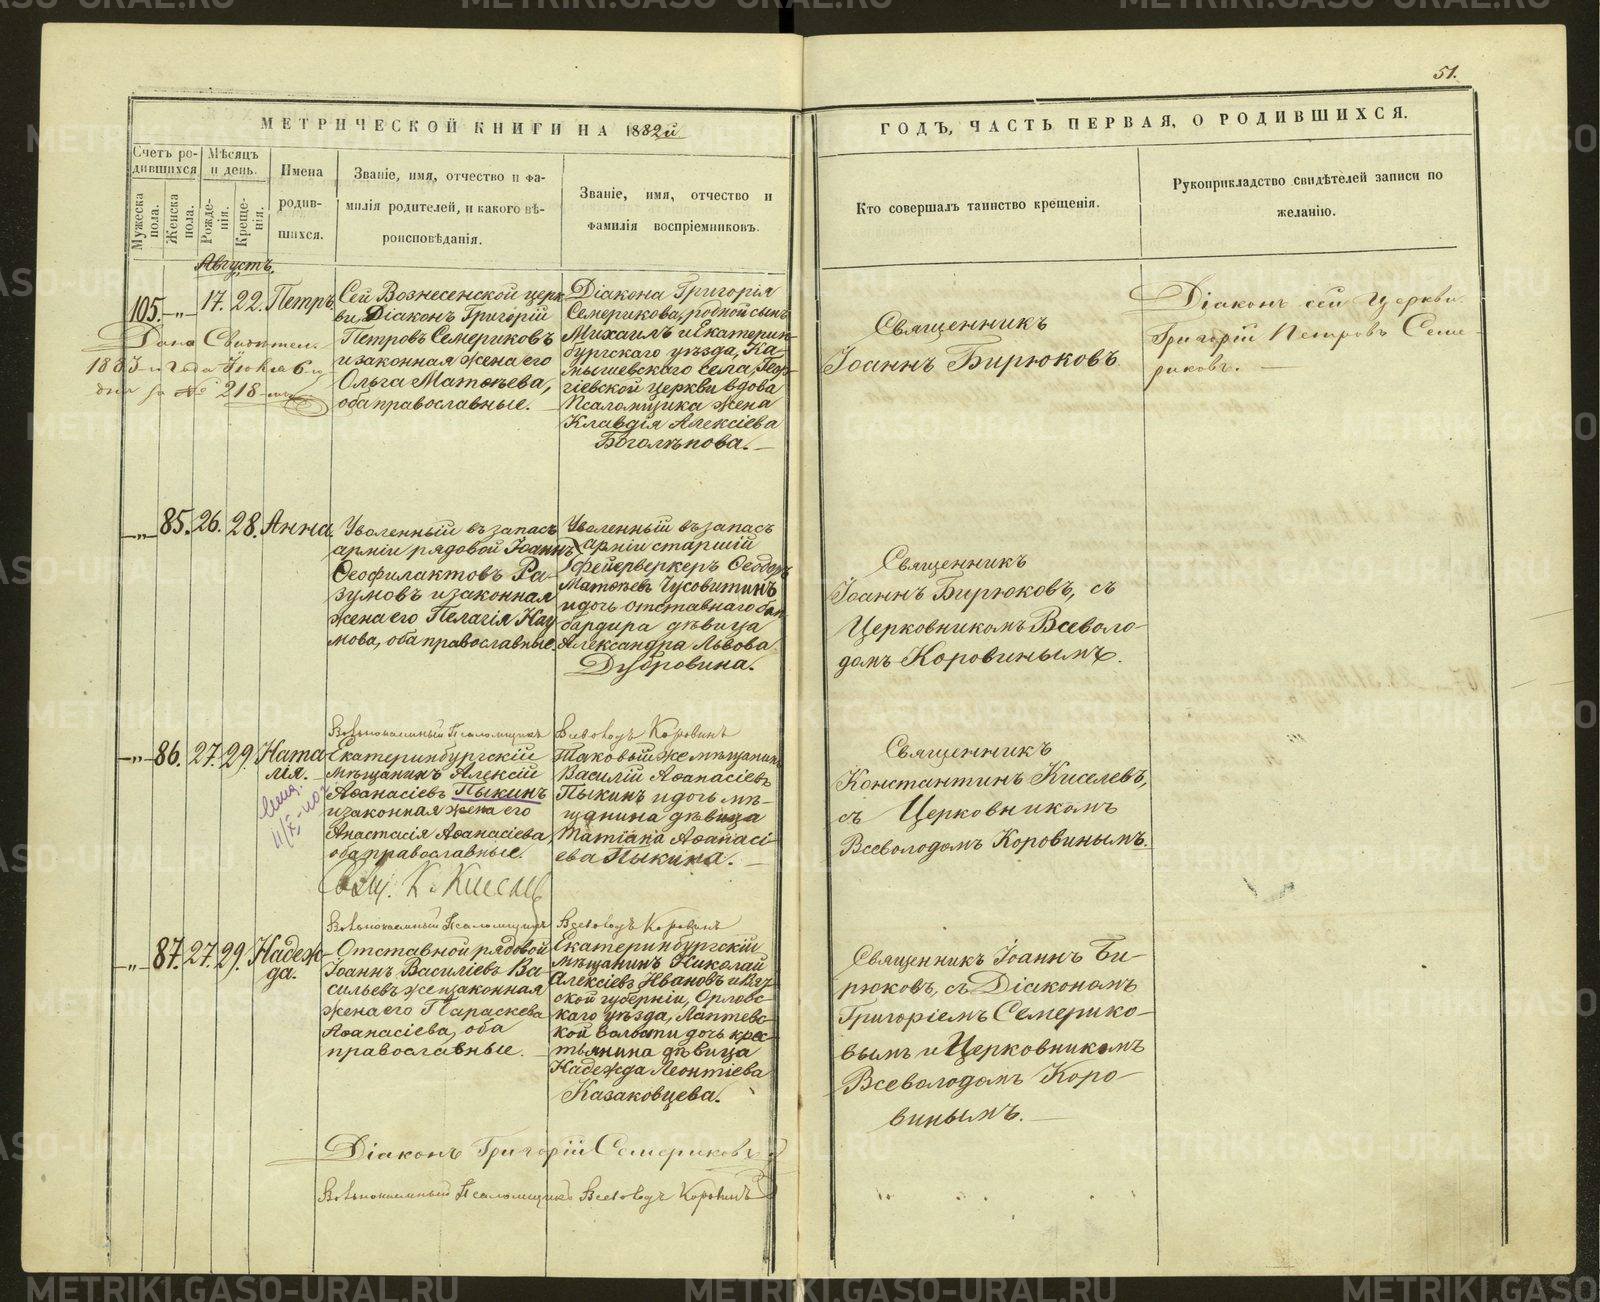 51.
МЕТРИЧЕСКОЙ КНИГИ НА 1882й
ГОДЪ, ЧАСТЬ ПЕРВАЯ, О РОДИВШИХСЯ.
Счетъ ро-
дившихся
Мужеска пола.
Женска пола.
Мѣсяцъ
и день.
Рожде-
нія.
Креще-
нія.
Имена
родив-
шихся.
Званіе, имя, отчество и фа-
милія родителей, и какого вѣ-
роисповѣданія.
Званіе, имя, отчество и
фамилія воспріемниковъ.
Кто совершалъ таинство крещенія.
Рукоприкладство свидѣтелей записи по
желанію.
Августъ.
105. -„- 17. 22. Петръ.
Сей Вознесенской церк-
ви, Діаконъ Григорій
Петровъ Семериковъ
и законная жена его
Ольга Матѳѣева,
оба православные.
Діакона Григорія
Семерикова, родной сынъ
Михаилъ и Екатерин-
бургскаго уѣзда, Ка-
мышевскаго села, Геор-
гіевской церкви вдова
Псаломщика жена
Клавдія Алексіева
Боголѣпова.
Священникъ
Іоаннъ Бирюковъ
Діаконъ сей Церкви
Григорій Петровъ Семе-
риковъ.
Дано Свидѣтел.
1883 года Іюля 6
дня за № 218
-„- 85. 26. 28. Анна.
Уволенный въ запасъ
арміи рядовой Іоаннъ
Ѳеофилактовъ Ра-
зумовъ и законная
жена его Пелагія Нау-
мова, оба православные.
Уволенный въ запасъ
арміи старшій
фейерверкеръ Ѳеодоръ
Матѳѣевъ Чусовитинъ
и дочь отставнаго бом-
бардира дѣвица
Александра Львова
Дубровина.
Священникъ
Іоаннъ Бирюковъ, съ
Церковникомъ Всеволо-
домъ Коровинымъ.
Вольнонаемный Псаломщикъ Всеволодъ Коровинъ
-„- 86. 27. 29. Ната-
лія.
Екатеринбургскій
мѣщанинъ Алексій
Аѳанасіевъ Пыкинъ
и законная жена его
Анастасія Аѳанасіева,
оба православные.
Таковый же мѣщанинъ
Василій Аѳанасіевъ
Пыкинъ и дочь мѣ-
щанина дѣвица
Татіана Аѳанасі-
ева Пыкина.
Священникъ
Константинъ Киселевъ,
съ Церковникомъ
Всеволодомъ Коровинымъ.
Свящ. К. Киселевъ
Вольнонаемный Псаломщикъ Всеволодъ Коровинъ
-„- 87. 27. 29. Надеж-
да.
Отставной рядовой
Іоаннъ Василіевъ Ва-
сильевъ же и законная
жена его Параскева
Аѳанасіева, оба
православные.
Екатеринбургскій
мѣщанинъ Николай
Алексіевъ Ивановъ и Вят-
ской губерніи, Орловс-
каго уѣзда, Лаптевс-
кой волости дочь крес-
тьянина дѣвица
Надежда Леонтіева
Казаковцева.
Священникъ Іоаннъ Би-
рюковъ, съ Діакономъ
Григоріемъ Семерико-
вымъ и Церковникомъ
Всеволодомъ Коро-
винымъ.
Діаконъ Григорій Семериковъ
Вольнонаемный Псаломщикъ Всеволодъ Коровинъ
METRIKI.GASO-URAL.RU